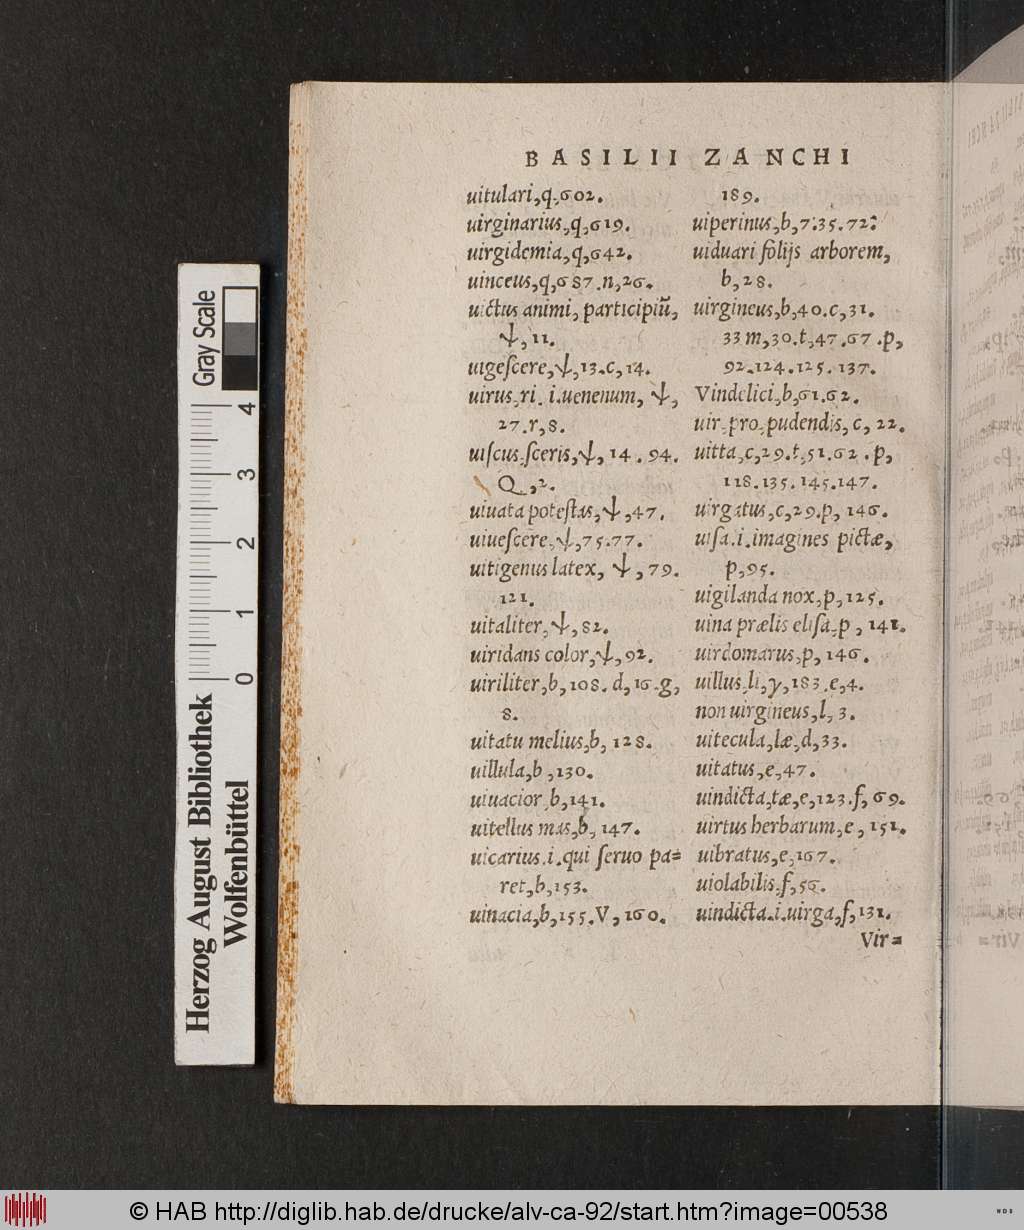 BASILII ZANCHI
uitulari, q, 602.
uirginarius, q, 619.
uirgidemia, q, 642.
uinceus, q, 687. n, 26.
uictus animi, participiũ,
ψ, 11.
uigeſcere, ψ, 13. c, 14.
uirus, ri. i. uenenum, ψ,
27. r, 8.
uiſcus, ſceris, ψ, 14. 94.
Q, 2.
uiuata poteſtas, ψ, 47.
uiueſcere, ψ, 75. 77.
uitigenus latex, ψ, 79.
121.
uitaliter, ψ, 82.
uiridans color, ψ, 92.
uiriliter, b, 108. d, 16. g,
8.
uitatu melius, b, 128.
uillula, b, 130.
uiuacior, b, 141.
uitellus mas, b, 147.
uicarius. i. qui ſeruo pa=
ret, b, 153.
uinacia, b, 155. V, 160.
189.
uiperinus, b, 7. 35. 72.
uiduari folijs arborem,
b, 28.
uirgineus, b, 40. c, 31.
33 m, 30. t, 47. 67. p,
92. 124. 125. 137.
Vindelici, b, 61. 62.
uir, pro, pudendis, c, 22.
uitta, c, 29. t, 51. 62. p,
118. 135. 145. 147.
uirgatus, c, 29. p, 146.
uiſa. i. imagines pictæ,
p, 95.
uigilanda nox, p, 125.
uina prælis eliſa, p, 141.
uirdomarus, p, 146.
uillus, li, γ, 183. e, 4.
non uirgineus, l, 3.
uitecula, læ, d, 33.
uitatus, e, 47.
uindicta, tæ, e, 123. f, 69.
uirtus herbarum, e, 151.
uibratus, e, 167.
uiolabilis, f, 56.
uindicta. i. uirga, f, 131.
Vir=
Gray Scale
4
3
2
1
0
Herzog August Bibliothek
Wolfenbüttel
© HAB http://diglib.hab.de/drucke/alv-ca-92/start.htm?image=00538